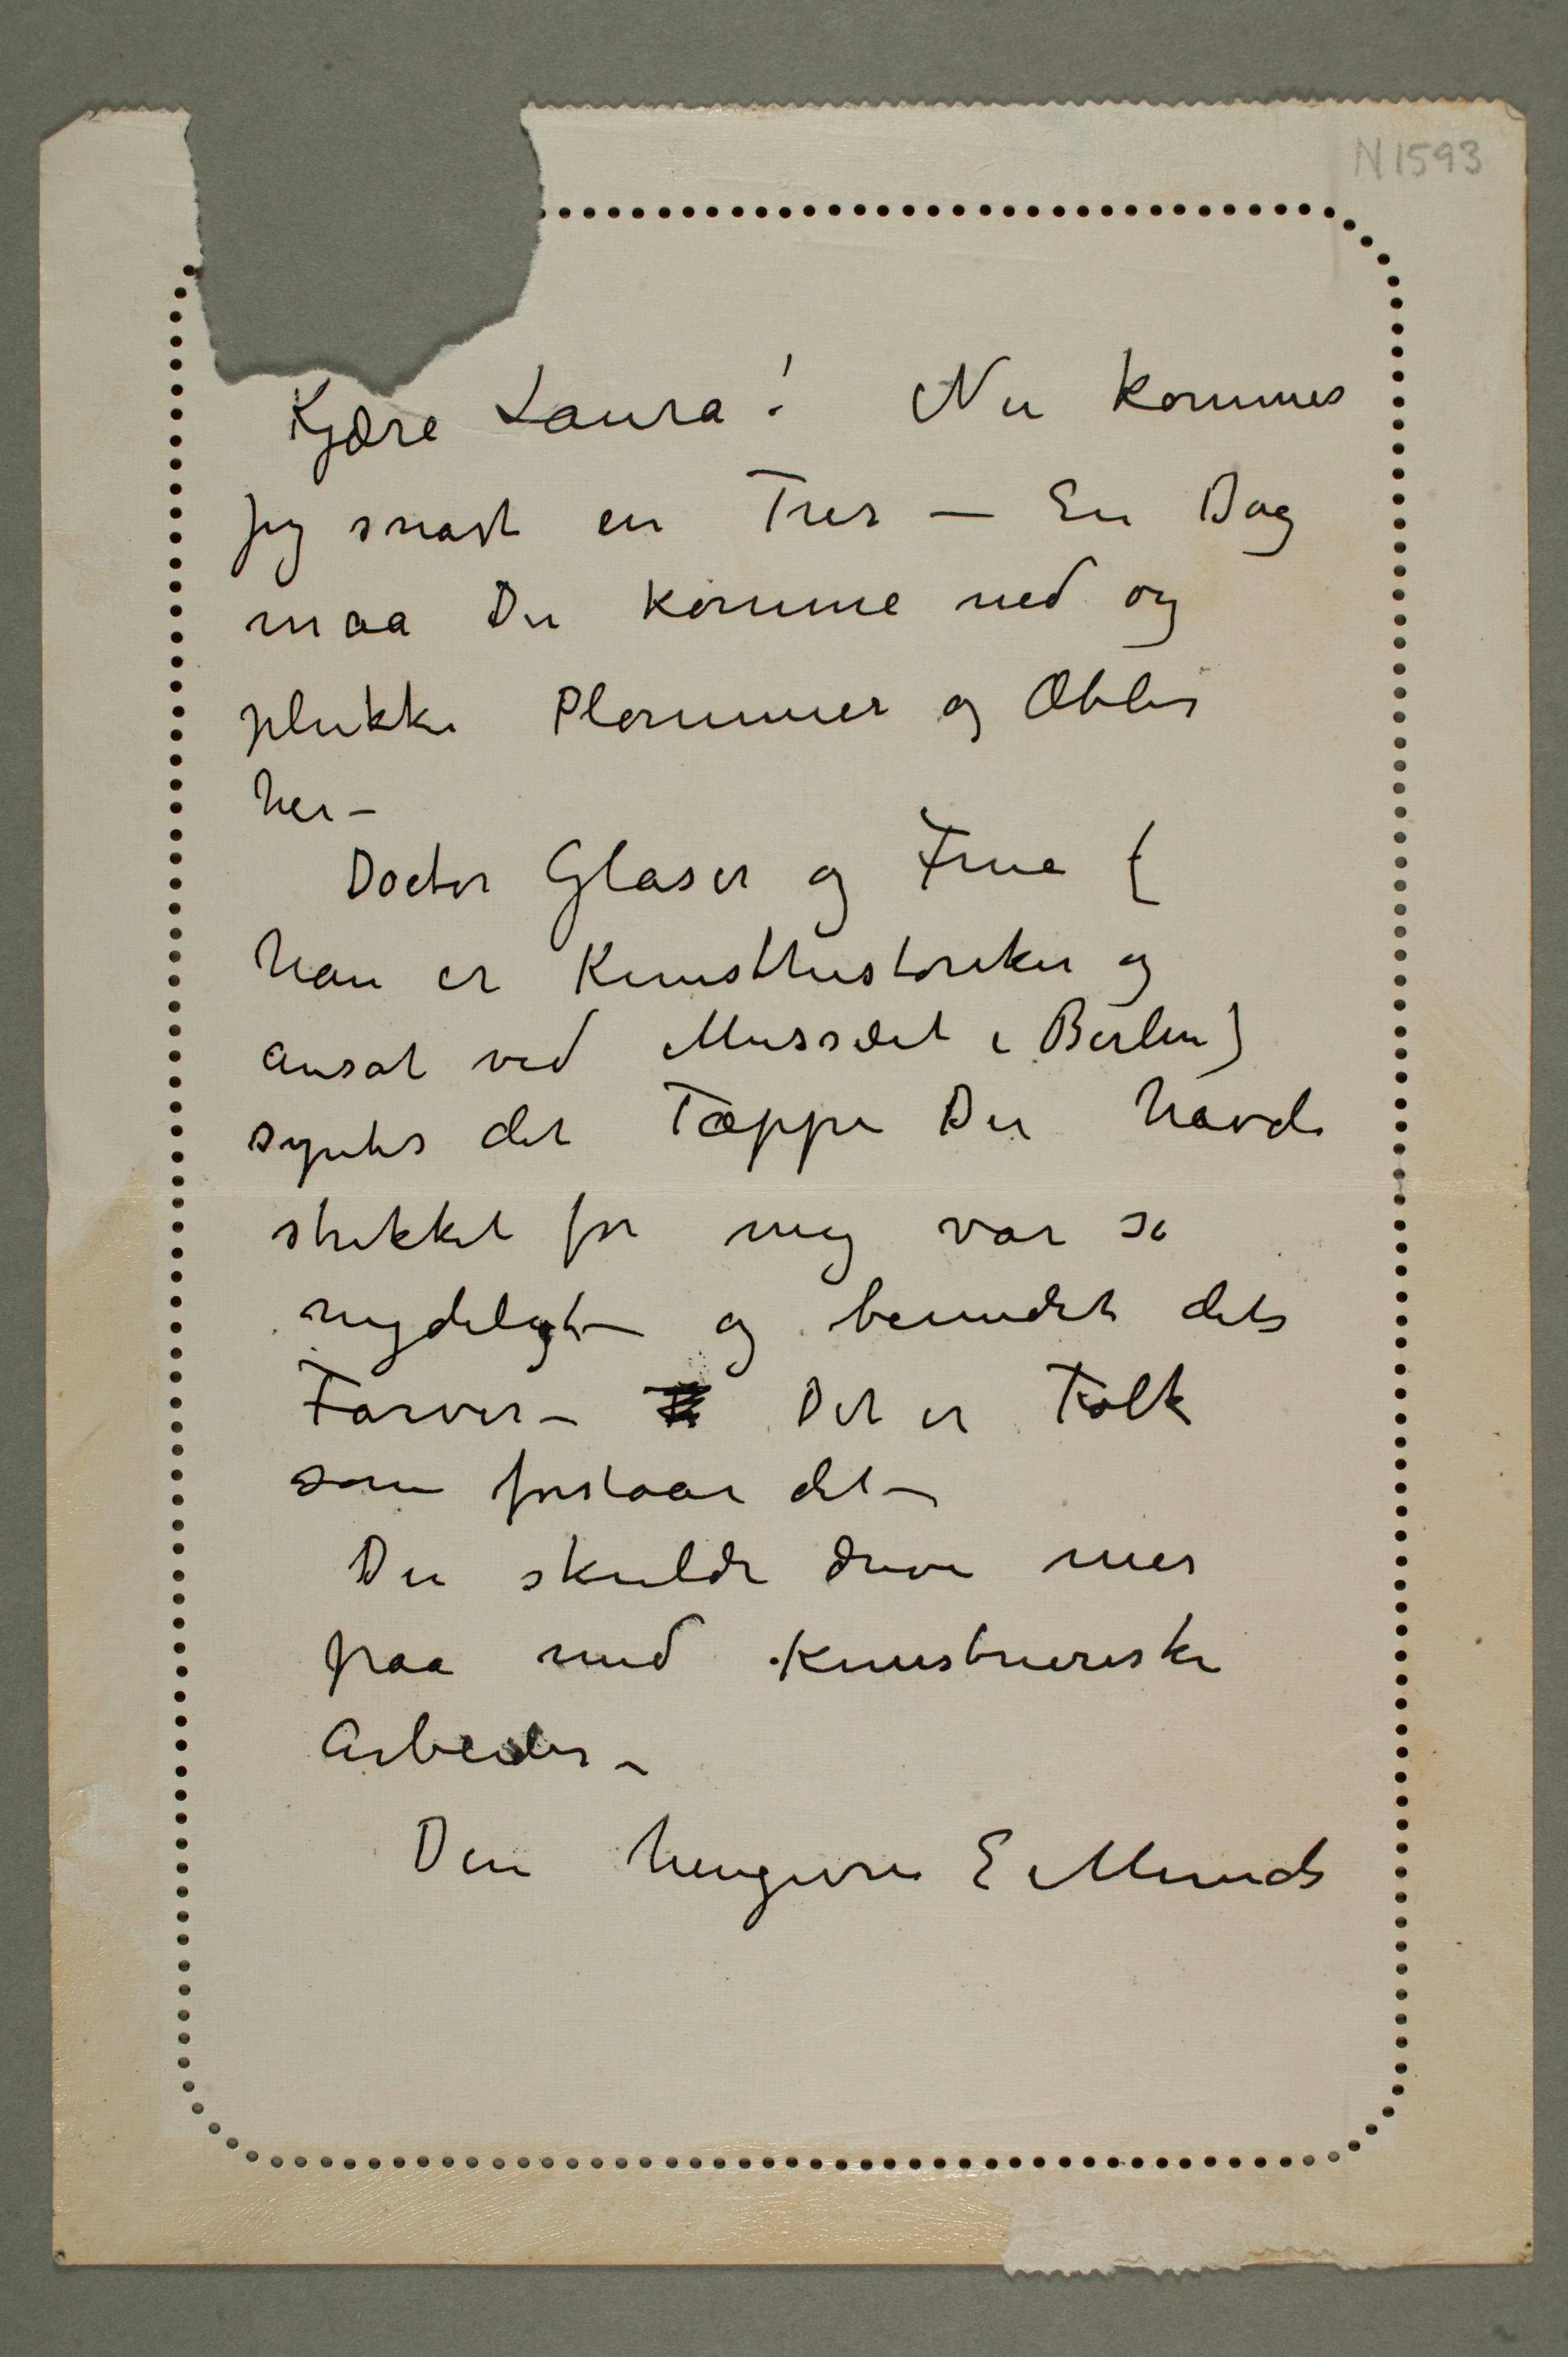 N 1593
Kjære Laura! Nu kommer
jeg snart en Tur — En Dag
maa Du komme ned og
plukke Plommer og Æbler
her –
Doctor Glaser og Frue (
han er Kunsthistoriker og
ansat ved Mussæet i Berlin)
syntes det Tæppe Du havde
strikket for mig var så
nydeligt – og beundret dets
Farver – Det er Folk
som forstaar det –
Du skulde drive mer
paa med kunstneriske
Arbeider –
Din hengivne E Munch